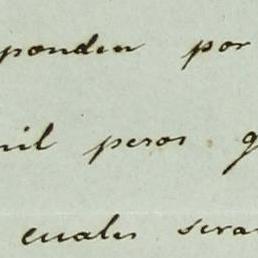 ponden por
mil pesos
cuales sera